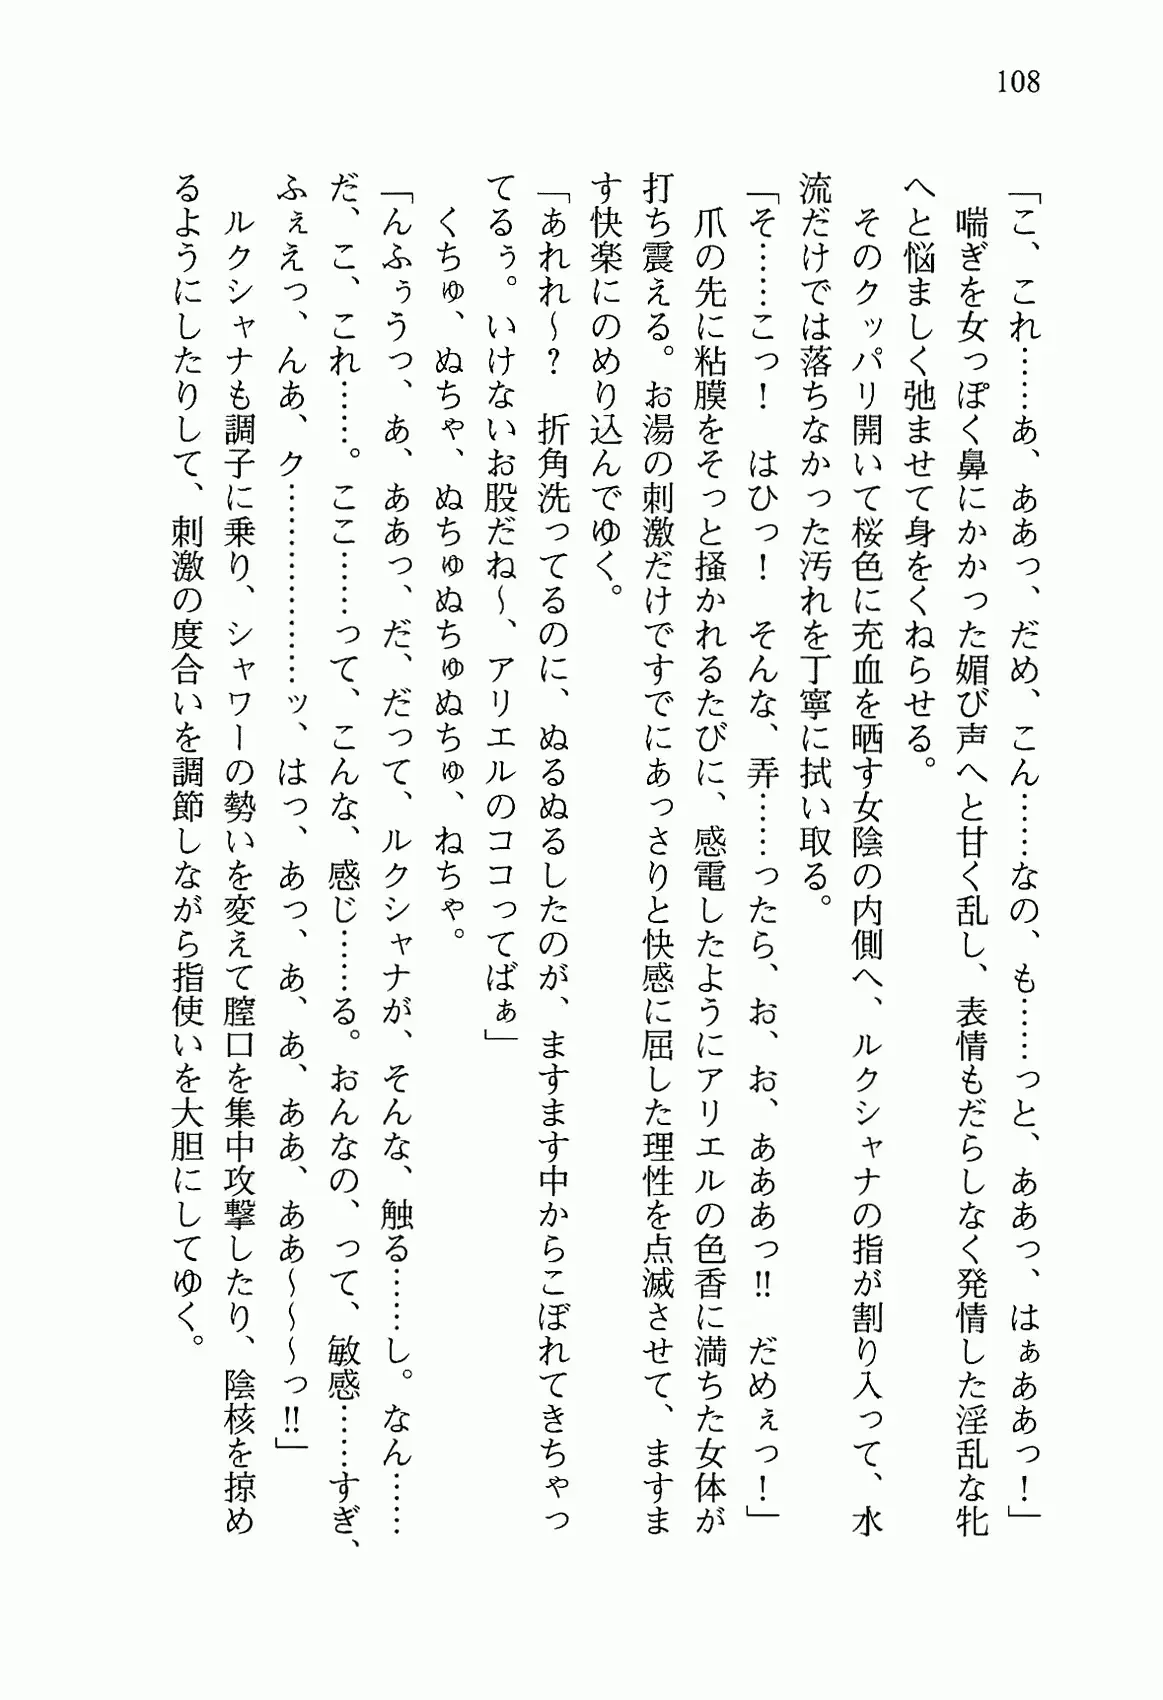 108
「こ、これ……あ、ああっ、だめ、こん……なの、も……っと、ああっ、はぁああっ！」
　喘ぎを女っぽく鼻にかかった媚び声へと甘く乱し、表情もだらしなく発情した淫乱な牝
へと悩ましく弛ませて身をくねらせる。
　そのクッパリ開いて桜色に充血を晒す女陰の内側へ、ルクシャナの指が割り入って、水
流だけでは落ちなかった汚れを丁寧に拭い取る。
「そ……こっ！　はひっ！　そんな、弄……ったら、お、お、あああっ‼　だめぇっ！」
　爪の先に粘膜をそっと掻かれるたびに、感電したようにアリエルの色香に満ちた女体が
打ち震える。お湯の刺激だけですでにあっさりと快感に屈した理性を点滅させて、ますま
す快楽にのめり込んでゆく。
「あれれ～？　折角洗ってるのに、ぬるぬるしたのが、ますます中からこぼれてきちゃっ
てるぅ。いけないお股だね～、アリエルのココってばぁ」
　くちゅ、ぬちゃ、ぬちゅぬちゅぬちゅ、ねちゃ。
「んふぅうっ、あ、ああっ、だ、だって、ルクシャナが、そんな、触る……し。なん……
だ、こ、これ……。ここ……って、こんな、感じ……る。おんなの、って、敏感……すぎ、
ふぇえっ、んあ、ク……………ッ、はっ、あっ、あ、あ、ああ、ああ～～～っ‼」
　ルクシャナも調子に乗り、シャワーの勢いを変えて膣口を集中攻撃したり、陰核を掠め
るようにしたりして、刺激の度合いを調節しながら指使いを大胆にしてゆく。